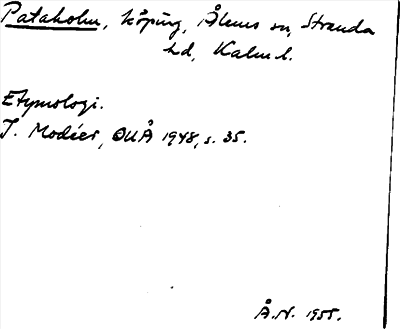 Pataholm, köping, Ålems sn, Stranda
hd, Kalm l.
Etymologi.
I. Modéer, OUÅ 1948, s. 35.
Å.N. 1955.